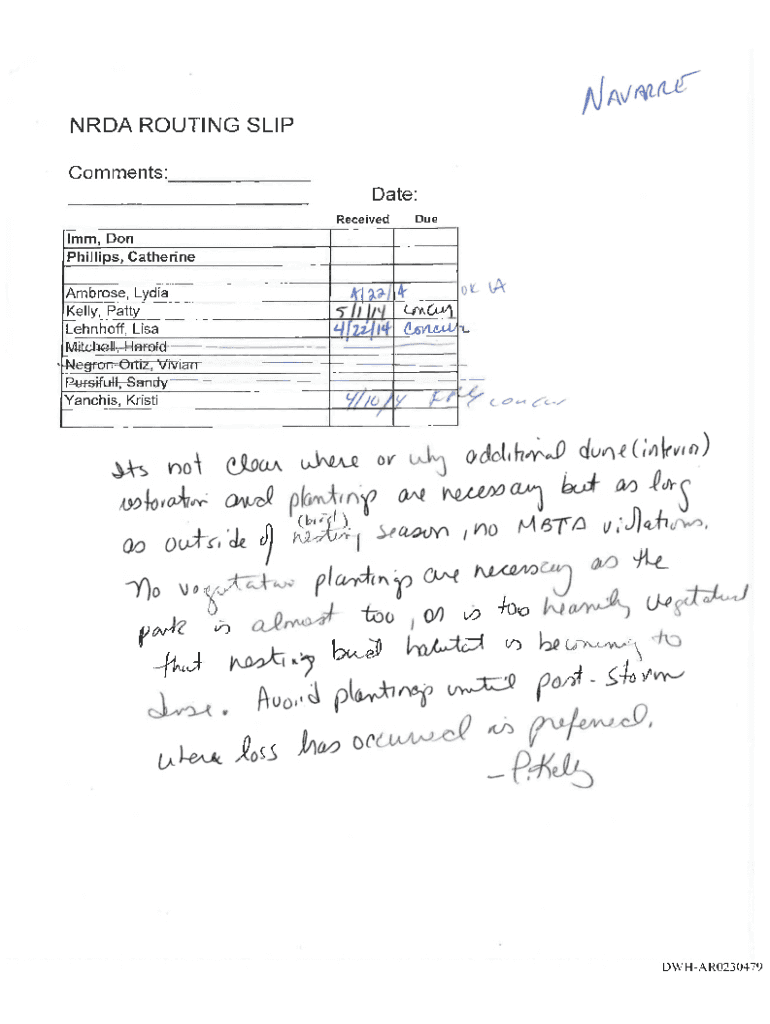 NAVARRE
NRDA ROUTING SLIP
Comments:
Date:
Received Due
Imm, Don
Phillips, Catherine
Ambrose, Lydia 4/22/14 OK LA
Kelly, Patty 5/1/14 concur
Lehnhoff, Lisa 4/22/14 Concur
Mitchell, Harold
Negron-Ortiz, Vivian
Pursifull, Sandy
Yanchis, Kristi 4/10/14 concur
Its not clear where or why additional dune (interior)
restoration and plantings are necessary but as long
as outside of (bird) nesting season, no MBTA violations.
No vegetative plantings are necessary as the
park is almost too, or is too heavily vegetated
that nesting bird habitat is becoming to
dense. Avoid plantings until post-storm
where loss has occurred is preferred.
- P. Kelly
DWH-AR0230479